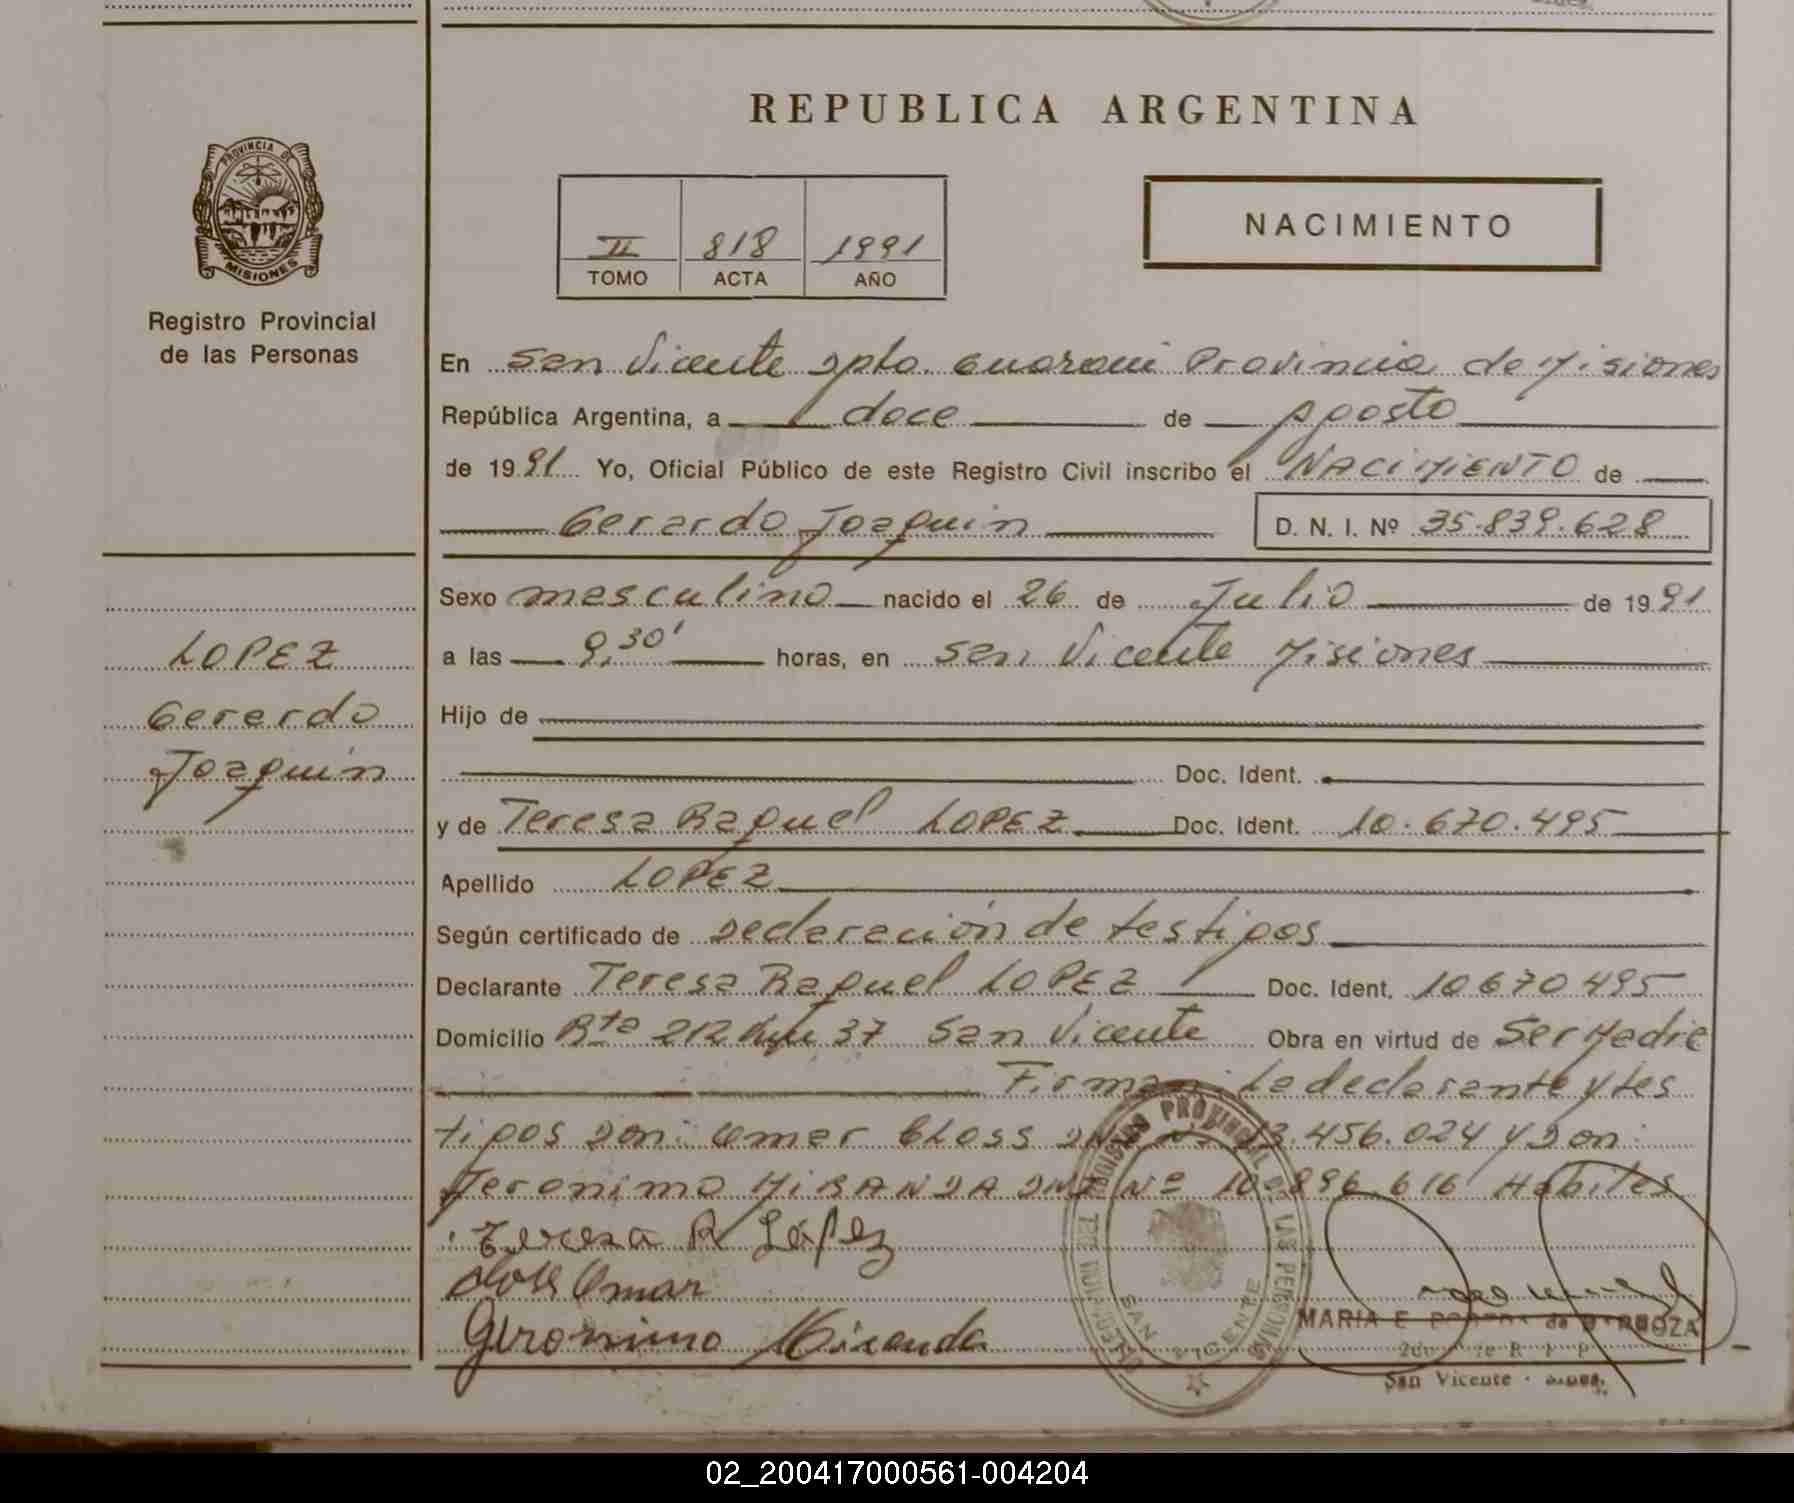 REPUBLICA ARGENTINA
PROVINCIA DE
MISIONES
Registro Provincial
de las Personas
II 818 1991
TOMO ACTA AÑO
NACIMIENTO
En San Vicente Dpto. Guarani Provincia de Misiones
República Argentina, a doce de Agosto
de 1991 Yo, Oficial Público de este Registro Civil inscribo el NACIMIENTO de
Gerardo Joaquin D. N. I. Nº 35.839.628
LOPEZ
Gerardo
Joaquin
Sexo masculino nacido el 26 de Julio de 1991
a las 9,30' horas, en San Vicente Misiones
Hijo de
Doc. Ident.
y de Teresa Raquel LOPEZ Doc. Ident. 10.670.495
Apellido LOPEZ
Según certificado de Declaración de testigos
Declarante Teresa Raquel LOPEZ Doc. Ident. 10670495
Domicilio Rta 212 Km 37 San Vicente Obra en virtud de Ser Madre
Firman: La declarante y tes
tigos Don: Omar GLOSS DNI Nº 13.456.024 y Don:
Jeronimo MIRANDA DNI Nº 10.896.616 Habiles
Teresa R López
Omar
Geronimo Miranda
REGISTRO PROVINCIAL DE LAS PERSONAS
SAN VICENTE
MARIA E. de
San Vicente - Mnes.
02_200417000561-004204